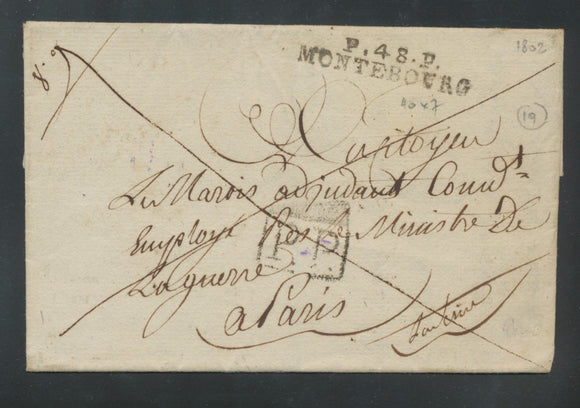 8.
P.48.P.
MONTEBOURG
1802
40x7
19
Au Citoyen
Le Marois adjudant Comd.t
Employé près le Ministre De
La guerre
P.P.
a Paris